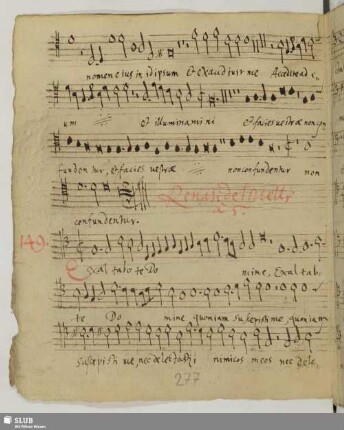 nomen eius in id ipsum Et exaudiuit me Accedite ad e,
um et illuminamini et facies uestræ non con
fundentur, et facies uestræ non confundentur non
confundentur.
149.
Exaltabo te Do mine, Exaltabo
te Do mine quoniam suscepisti me, quoniam
suscepisti me, nec delectasti inimicos meos nec dele,
277
SLUB
Wir führen Wissen.